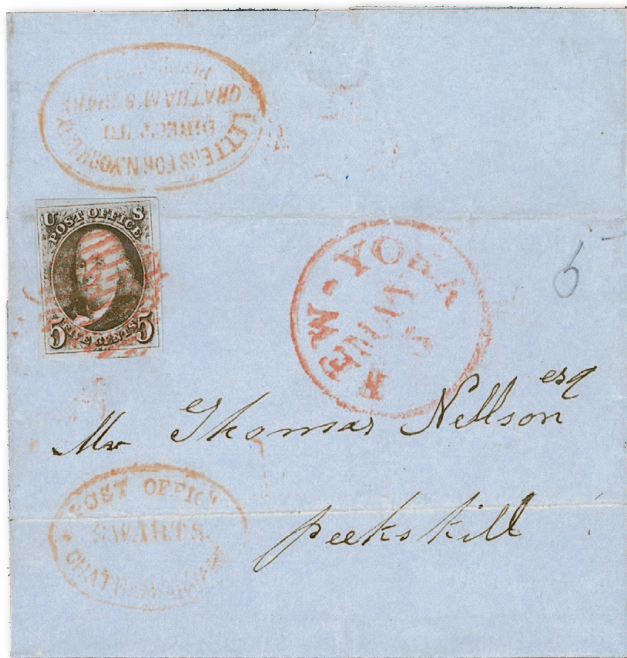 LETTERS FOR N. YORK CITY
DIRECT TO
CHATHAM SQUARE
U S
POST OFFICE
FIVE CENTS
5 5
NEW-YORK
MAY
5
Mr Thomas Nellson esq
Peekskill
POST OFFICE
SWARTS.
CHATHAM